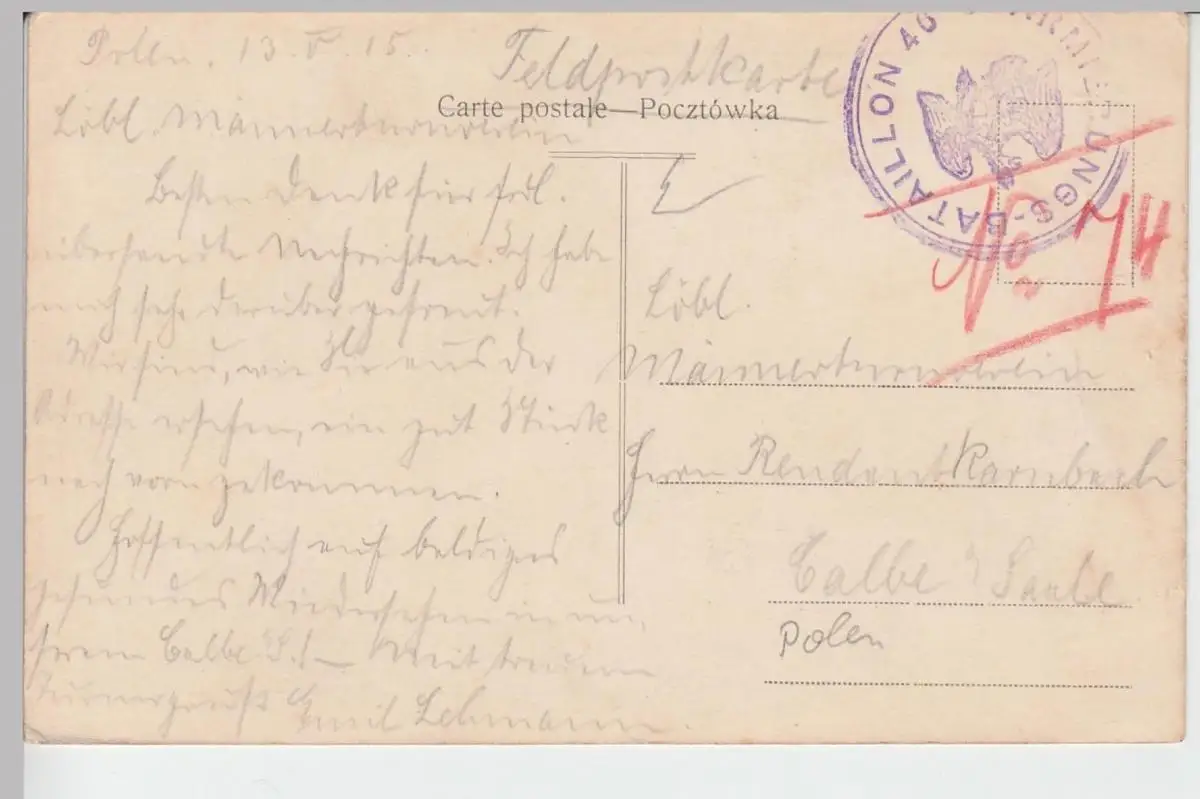 Polen, 13. V. 15.
Feldpostkarte
Carte postale—Pocztówka
ARMIERUNGS-BATAILLON 46
No. 74
Löbl. Männerturnverein
Besten Dank für frdl.
übersandte Nachrichten. Ich habe
mich sehr darüber gefreut.
Wir sind, wie Sie aus der
Adresse ersehen, ein gut Stück
nach vorn gekommen.
Hoffentlich auf baldiges
gesundes Wiedersehen in un-
serem Calbe a. S. — Mit treuem
Turnergruß Emil Lehmann.
Löbl.
Männerturnverein
Herrn Rendant Karnbach
Calbe a/ Saale
Polen